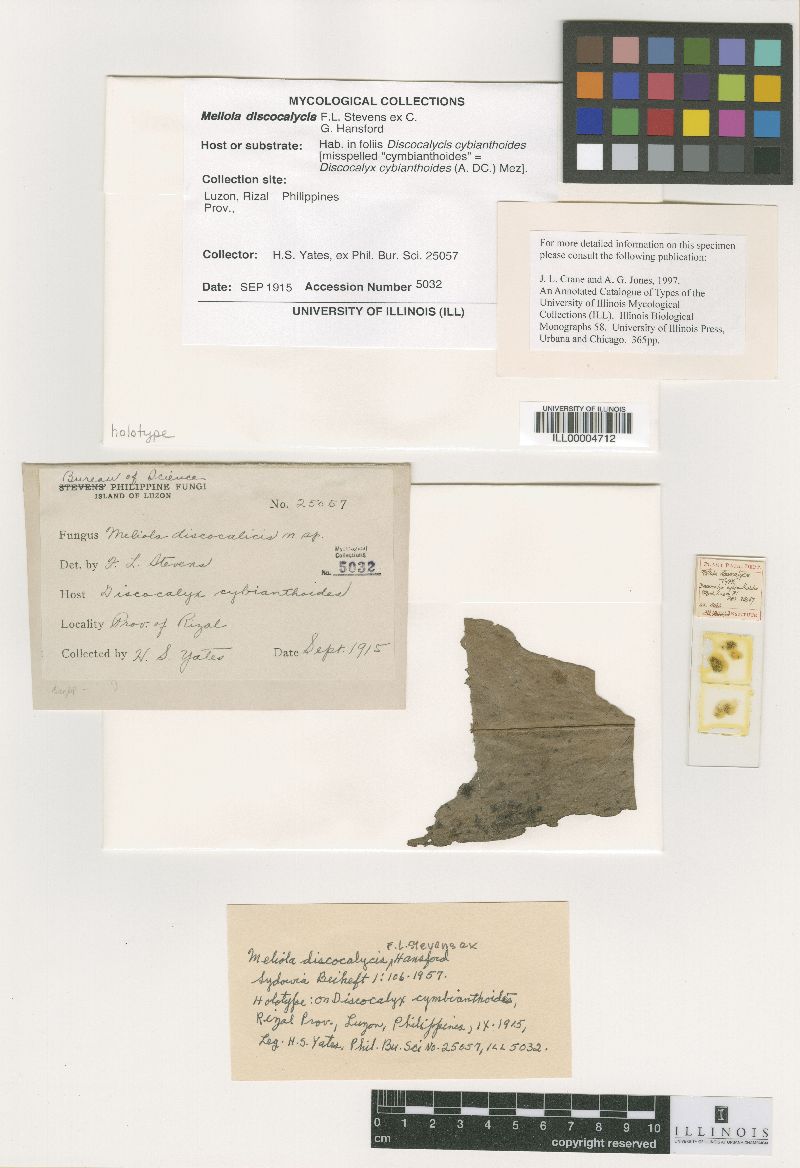 MYCOLOGICAL COLLECTIONS
Meliola discocalycis F.L. Stevens ex C.
G. Hansford
Host or substrate: Hab. in foliis Discocalycis cybianthoides
[misspelled "cymbianthoides" =
Discocalyx cybianthoides (A. DC.) Mez].
Collection site:
Luzon, Rizal Philippines
Prov.,
Collector: H.S. Yates, ex Phil. Bur. Sci. 25057
Date: SEP 1915 Accession Number 5032
UNIVERSITY OF ILLINOIS (ILL)
For more detailed information on this specimen
please consult the following publication:
J. L. Crane and A. G. Jones, 1997.
An Annotated Catalogue of Types of the
University of Illinois Mycological
Collections (ILL). Illinois Biological
Monographs 58. University of Illinois Press,
Urbana and Chicago. 365pp.
UNIVERSITY OF ILLINOIS
ILL00004712
holotype
Bureau of Science
STEVENS' PHILIPPINE FUNGI
ISLAND OF LUZON
No. 25057
Fungus Meliola discocalicis n sp.
Det. by F. L. Stevens
Mycological
Collections
No. 5032
Host Discocalyx cybianthoides
Locality Prov. of Rizal
Collected by H. S. Yates Date Sept. 1915
F. L. Stevens ex
Meliola discocalycis, Hansford
Sydowia Beiheft 1:106. 1957.
Holotype: on Discocalyx cymbianthoides,
Rizal Prov., Luzon, Philippines, IX. 1915,
Leg. H.S. Yates. Phil. Bu. Sci No. 25057, ILL 5032.
0 1 2 3 4 5 6 7 8 9 10
cm
copyright reserved
I
ILLINOIS
UNIVERSITY OF ILLINOIS AT URBANA-CHAMPAIGN